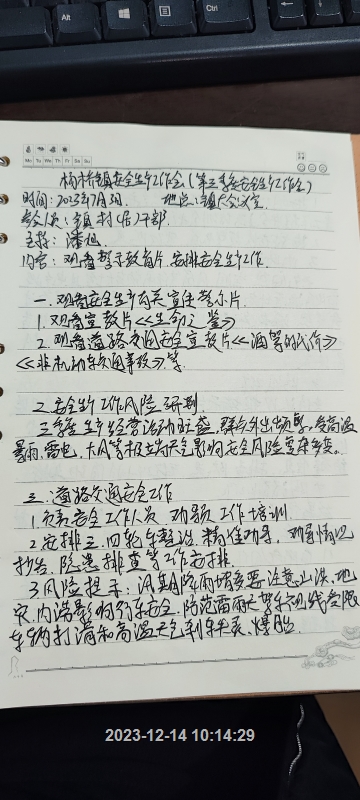 Alt
Mo Tu We Th Fr Sa Su
杨桥镇安全生产工作会(第三季度安全生产工作会)
时间:2023年7月3日. 地点:镇大会议室.
参会人员:镇村(居)干部.
主持:潘
内容:观看警示教育片、安排安全生产工作.
一.观看安全生产有关宣传警示片
1.观看宣教片《生命之鉴》
2.观看道路交通安全宣教片《酒驾的代价》
《非机动车交通事故》等.
二.安全生产工作风险研判
三季度生产经营活动旺盛,群众外出频繁,受高温
暴雨、雷电、大风等极端天气影响安全风险复杂多变。
三.道路交通安全工作
1.负责安全工作人员 工作培训
2.安排三、四轮车整治 精准劝导,劝导情况
报告、隐患排查等工作安排.
3.风险提示:汛期降雨增多要注意山洪、地
灾、内涝影响行车安全,防范雷雨天驾驶视线受限
车辆打滑和高温天气刹车失灵、爆胎.
2023-12-14 10:14:29